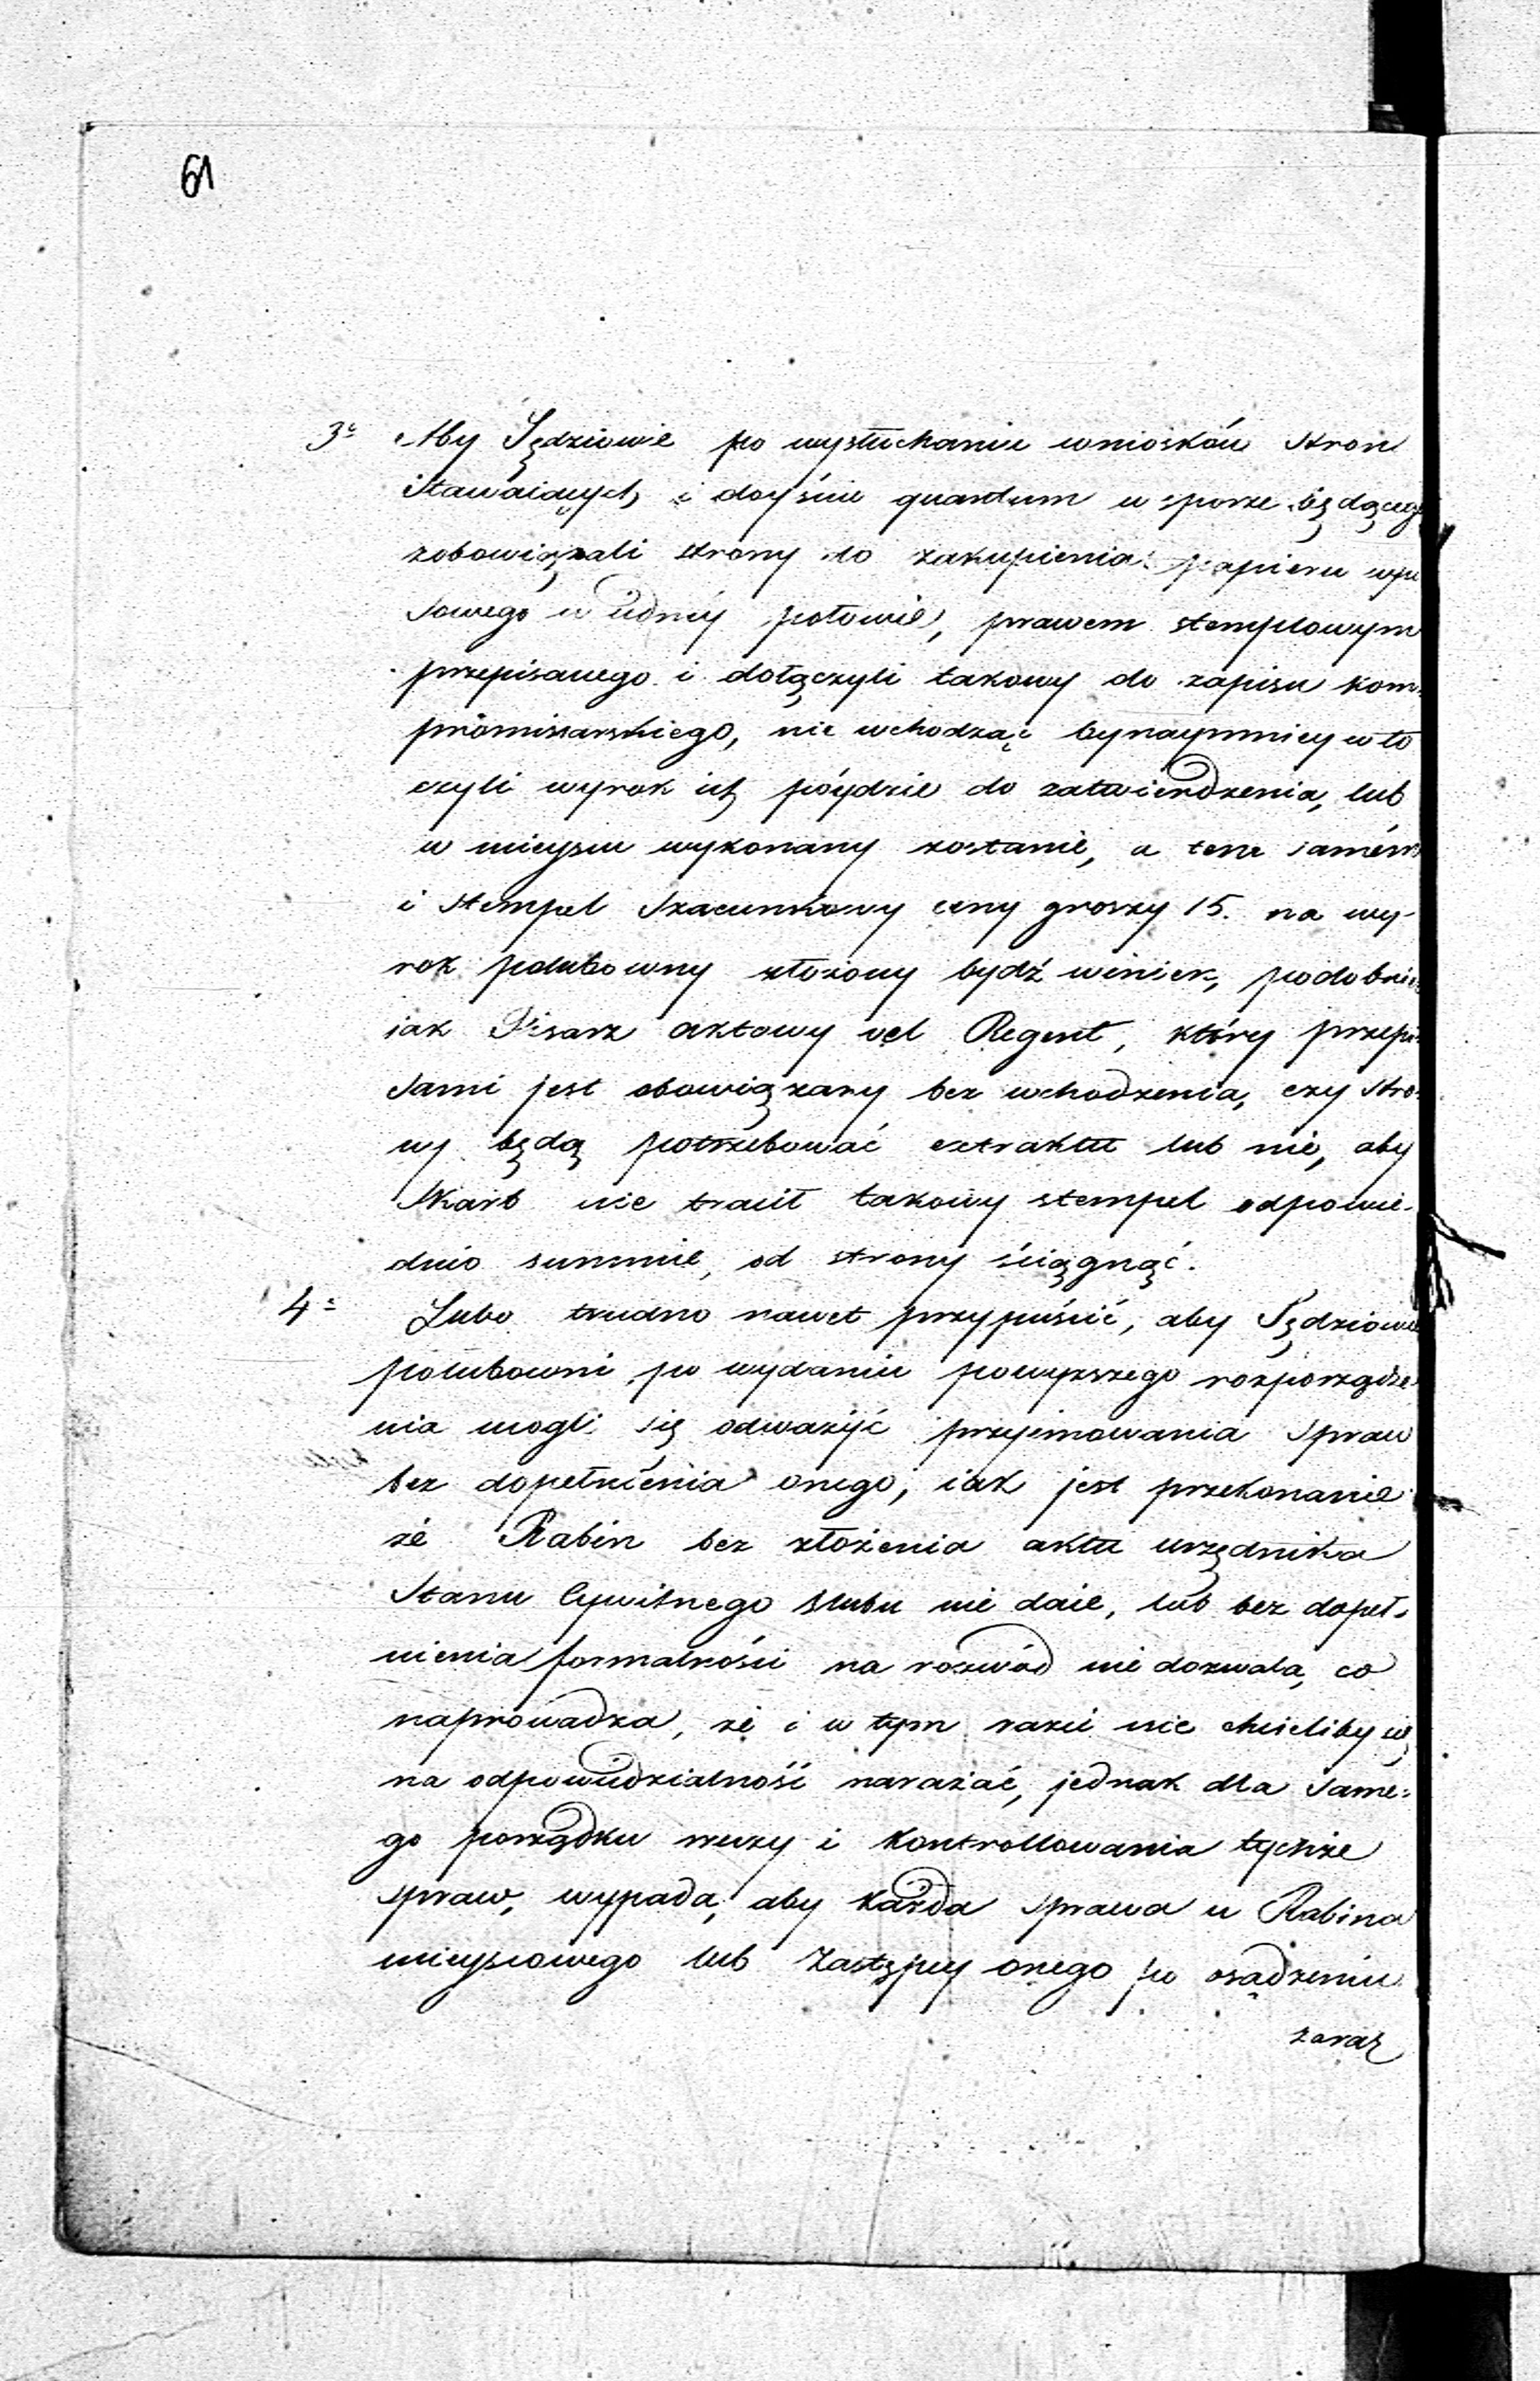 61
3º Aby Sędziowie po wysłuchaniu wniosków stron
stawaiących i doyście quantum w sporze będącego
zobowiązali strony do zakupienia papieru wpi
sowego w iedney połowie, prawem stemplowym
przepisanego i dołączyli takowy do zapisu kom-
promissarskiego, nie wchodząc bynaymniey w to
czyli wyrok ich póydzie do zatwierdzenia, lub
w mieyscu wykonany zostanie, a tem samém
i stempel szacunkowy ceny groszy 15. na wy-
rok polubowny złożony bydź winien, podobnie
iak Pisarz aktowy vel Regent, który przepi-
sami jest obowiązany bez wchodzenia, czy stro-
ny będą potrzebować extraktu lub nie, aby
Skarb nie tracił takowy stempel odpowie-
dnio summie, od strony ściągnąć.
4º Lubo trudno nawet przypuścić, aby Sędziowie
polubowni po wydaniu powyższego rozporządze
nia mogli się odważyć przyjmowania spraw
bez dopełnienia onego; iak jest przekonanie
że Rabin bez złożenia aktu urzędnika
Stanu Cywilnego ślubu nie daie, lub bez dopeł-
nienia formalności na rozwód nie dozwala, co
naprowadza, że i w tym razie nie chcieliby się
na odpowiedzialność narażać, jednak dla same-
go porządku rzeczy i kontrollowania tychże
spraw, wypada, aby każda sprawa u Rabina
mieyscowego lub Zastępcy onego po osądzeniu
zaraz